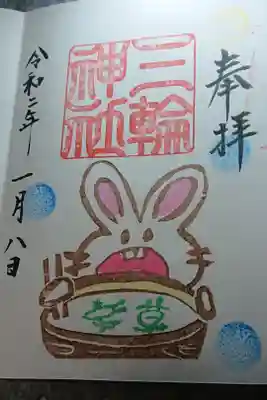 奉拝
三輪
神社
令和二年 一月八日
草